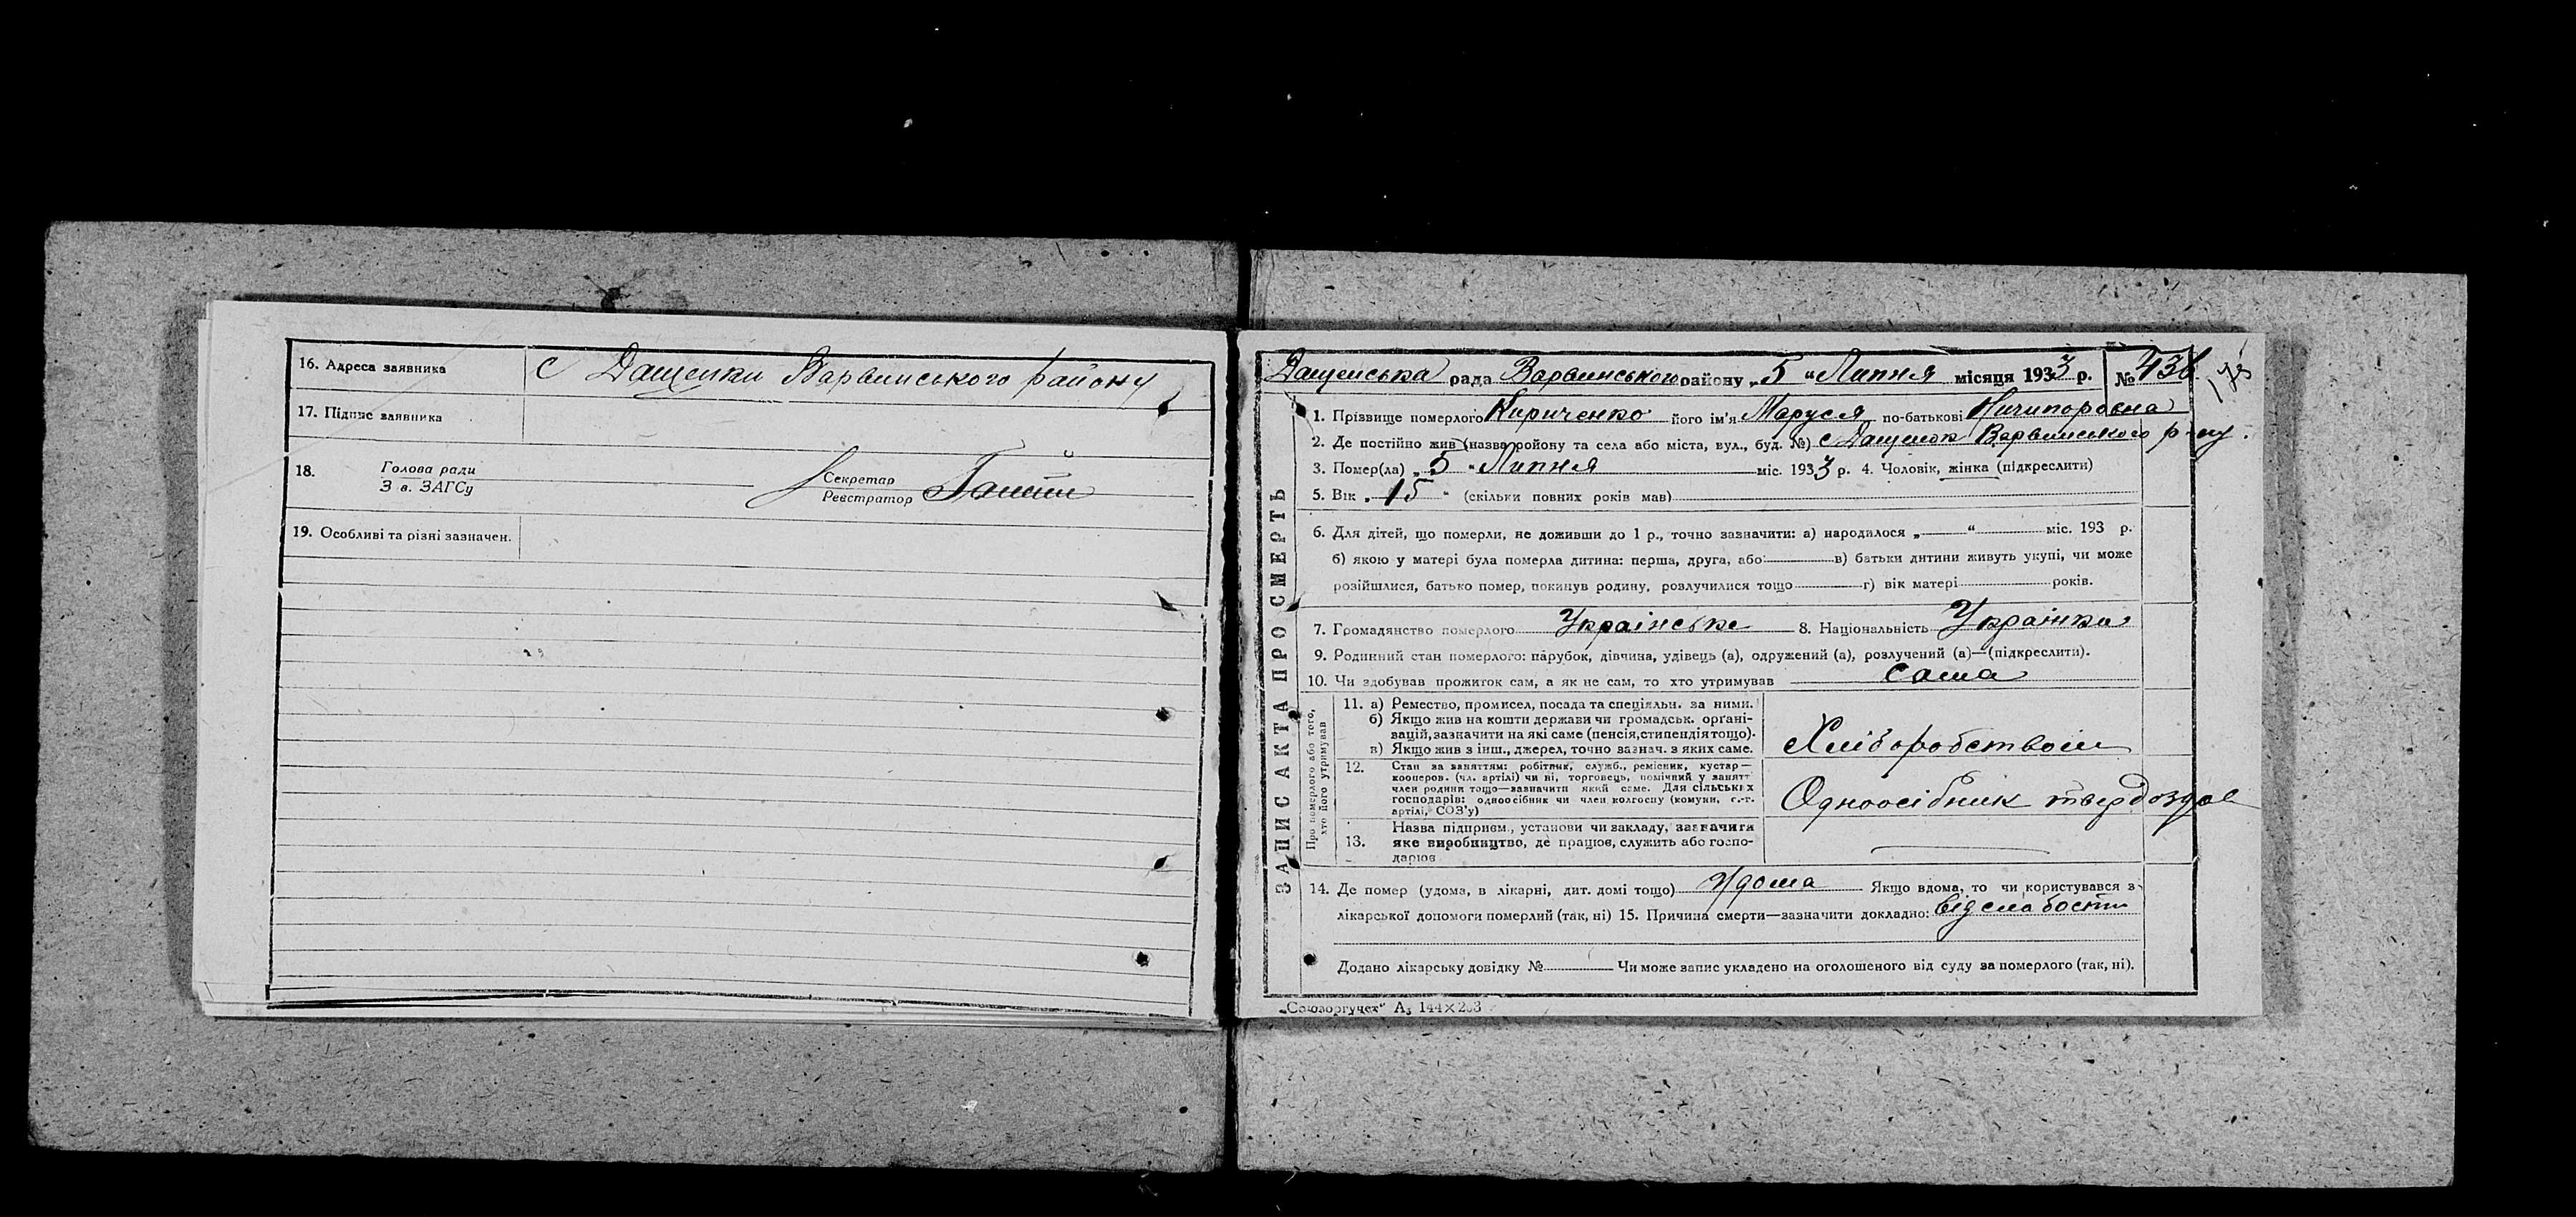 16. Адреса заявника с Дащенки Варвинського району
17. Підпис заявника
18. Голова ради
З в. ЗАГСу
Секретар
Реєстратор
19. Особливі та різні зазначен.
ЗАПИС АКТА ПРО СМЕРТЬ
Дащенська рада Варвинського району „5“ Липня місяця 1933 р. № 436
173
1. Прізвище померлого Кириченко його ім'я Маруся по-батькові Ничипоровна
2. Де постійно жив (назва району та села або міста, вул., буд. №) с Дащенок Варвинського р-ну.
3. Помер(ла) „5“ Липня міс. 1933 р. 4. Чоловік, жінка (підкреслити)
5. Вік „15“ (скільки повних років мав)
6. Для дітей, що померли, не доживши до 1 р., точно зазначити: а) народилося „ “ міс. 193 р.
б) якою у матері була померла дитина: перша, друга, або в) батьки дитини живуть укупі, чи може
розійшлися, батько помер, покинув родину, розлучилися тощо г) вік матері років.
7. Громадянство померлого Українське 8. Національність Українка
9. Родинний стан померлого: парубок, дівчина, удівець (а), одружений (а), розлучений (а)—(підкреслити).
10. Чи здобував прожиток сам, а як не сам, то хто утримував сама
Про померлого або того,
хто його утримував
11. а) Ремество, промисел, посада та спеціяльн. за ними.
б) Якщо жив на кошти держави чи громадськ. органі-
зацій, зазначити на які саме (пенсія, стипендія тощо).
в) Якщо жив з інш., джерел, точно зазнач. з яких саме.
Хліборобством
12. Стан за заняттям: робітник, служб., ремісник, кустар—
кооперов. (чл. артілі) чи ні, торговець, помічний у занятт
член родини тощо—зазначити який саме. Для сільських
господарів: одноосібник чи член колгоспу (комуни, с.-г.
артілі, СОЗ'у)
Одноосібник твердоздав
13. Назва підприєм., установи чи закладу, зазначити
яке виробництво, де працюв, служить або госпо-
дарюв
14. Де помер (удома, в лікарні, дит. домі тощо) Удома Якщо вдома, то чи користувався з
лікарської допомоги померлий (так, ні) 15. Причина смерти—зазначити докладно: від слабости
Додано лікарську довідку № Чи може запис укладено на оголошеного від суду за померлого (так, ні).
„Союзоргучет“ А₅ 144×203